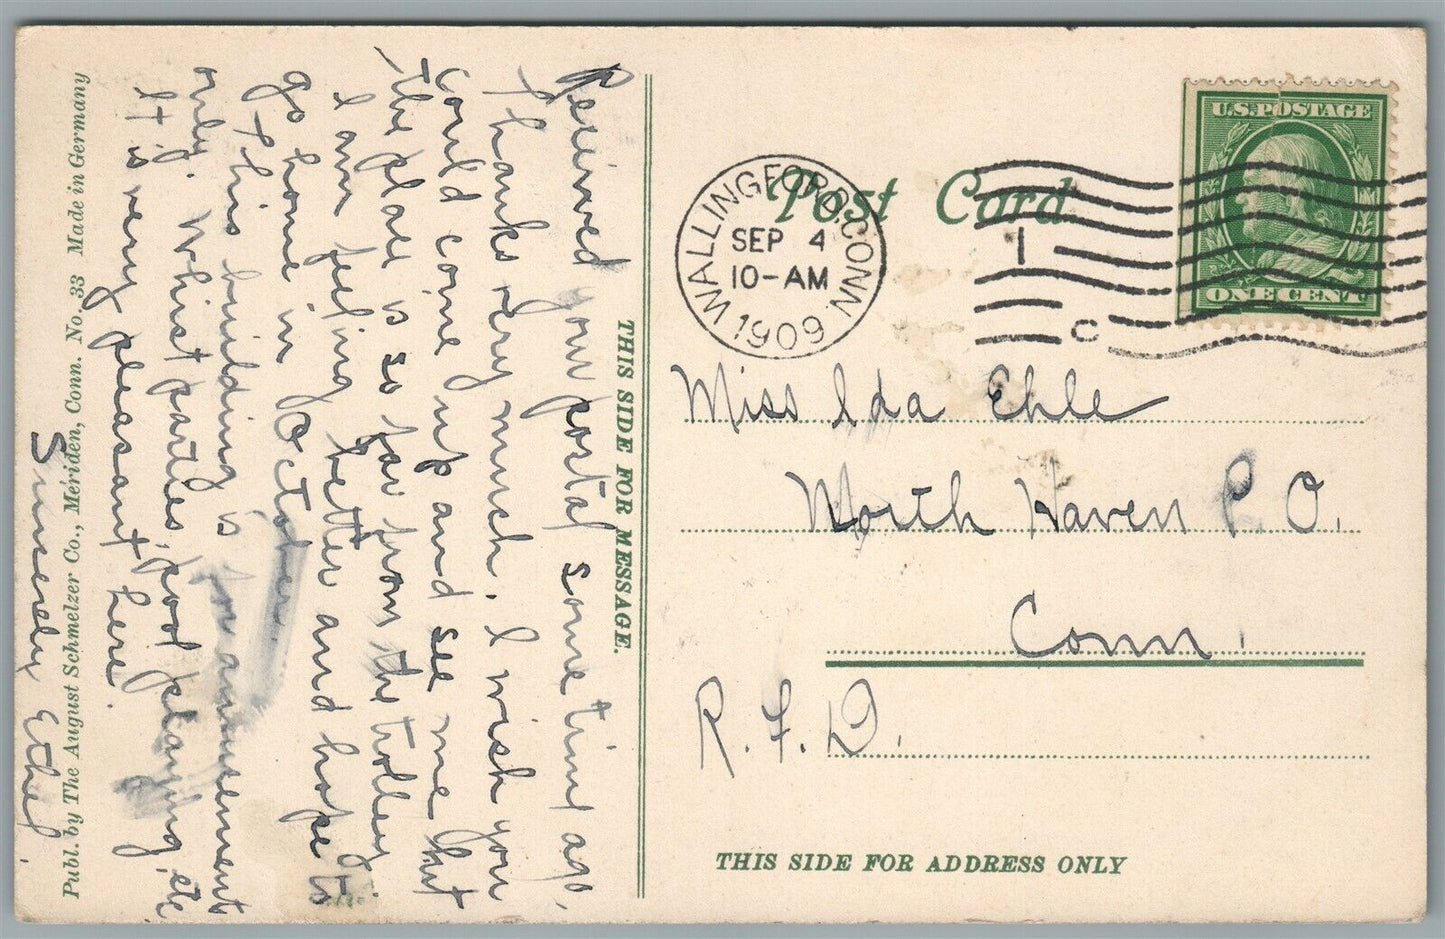 Post Card
WALLINGFORD CONN.
SEP 4
10-AM
1909
1
C
U.S. POSTAGE
ONE CENT
Miss Ida Ehle
North Haven P. O.
Conn.
R. F. D.
THIS SIDE FOR ADDRESS ONLY
THIS SIDE FOR MESSAGE.
Reeived your postal some time ago,
Thanks very much. I wish you
could come up and see me but
the place is so far from the trolley
I am feeling better and hope to
go home in October.
This building is for amusement
only. Whist parties, pool playing, etc.
It is very pleasant here.
Sincerely Ethel.
Publ. by The August Schmelzer Co., Meriden, Conn. No. 33 Made in Germany